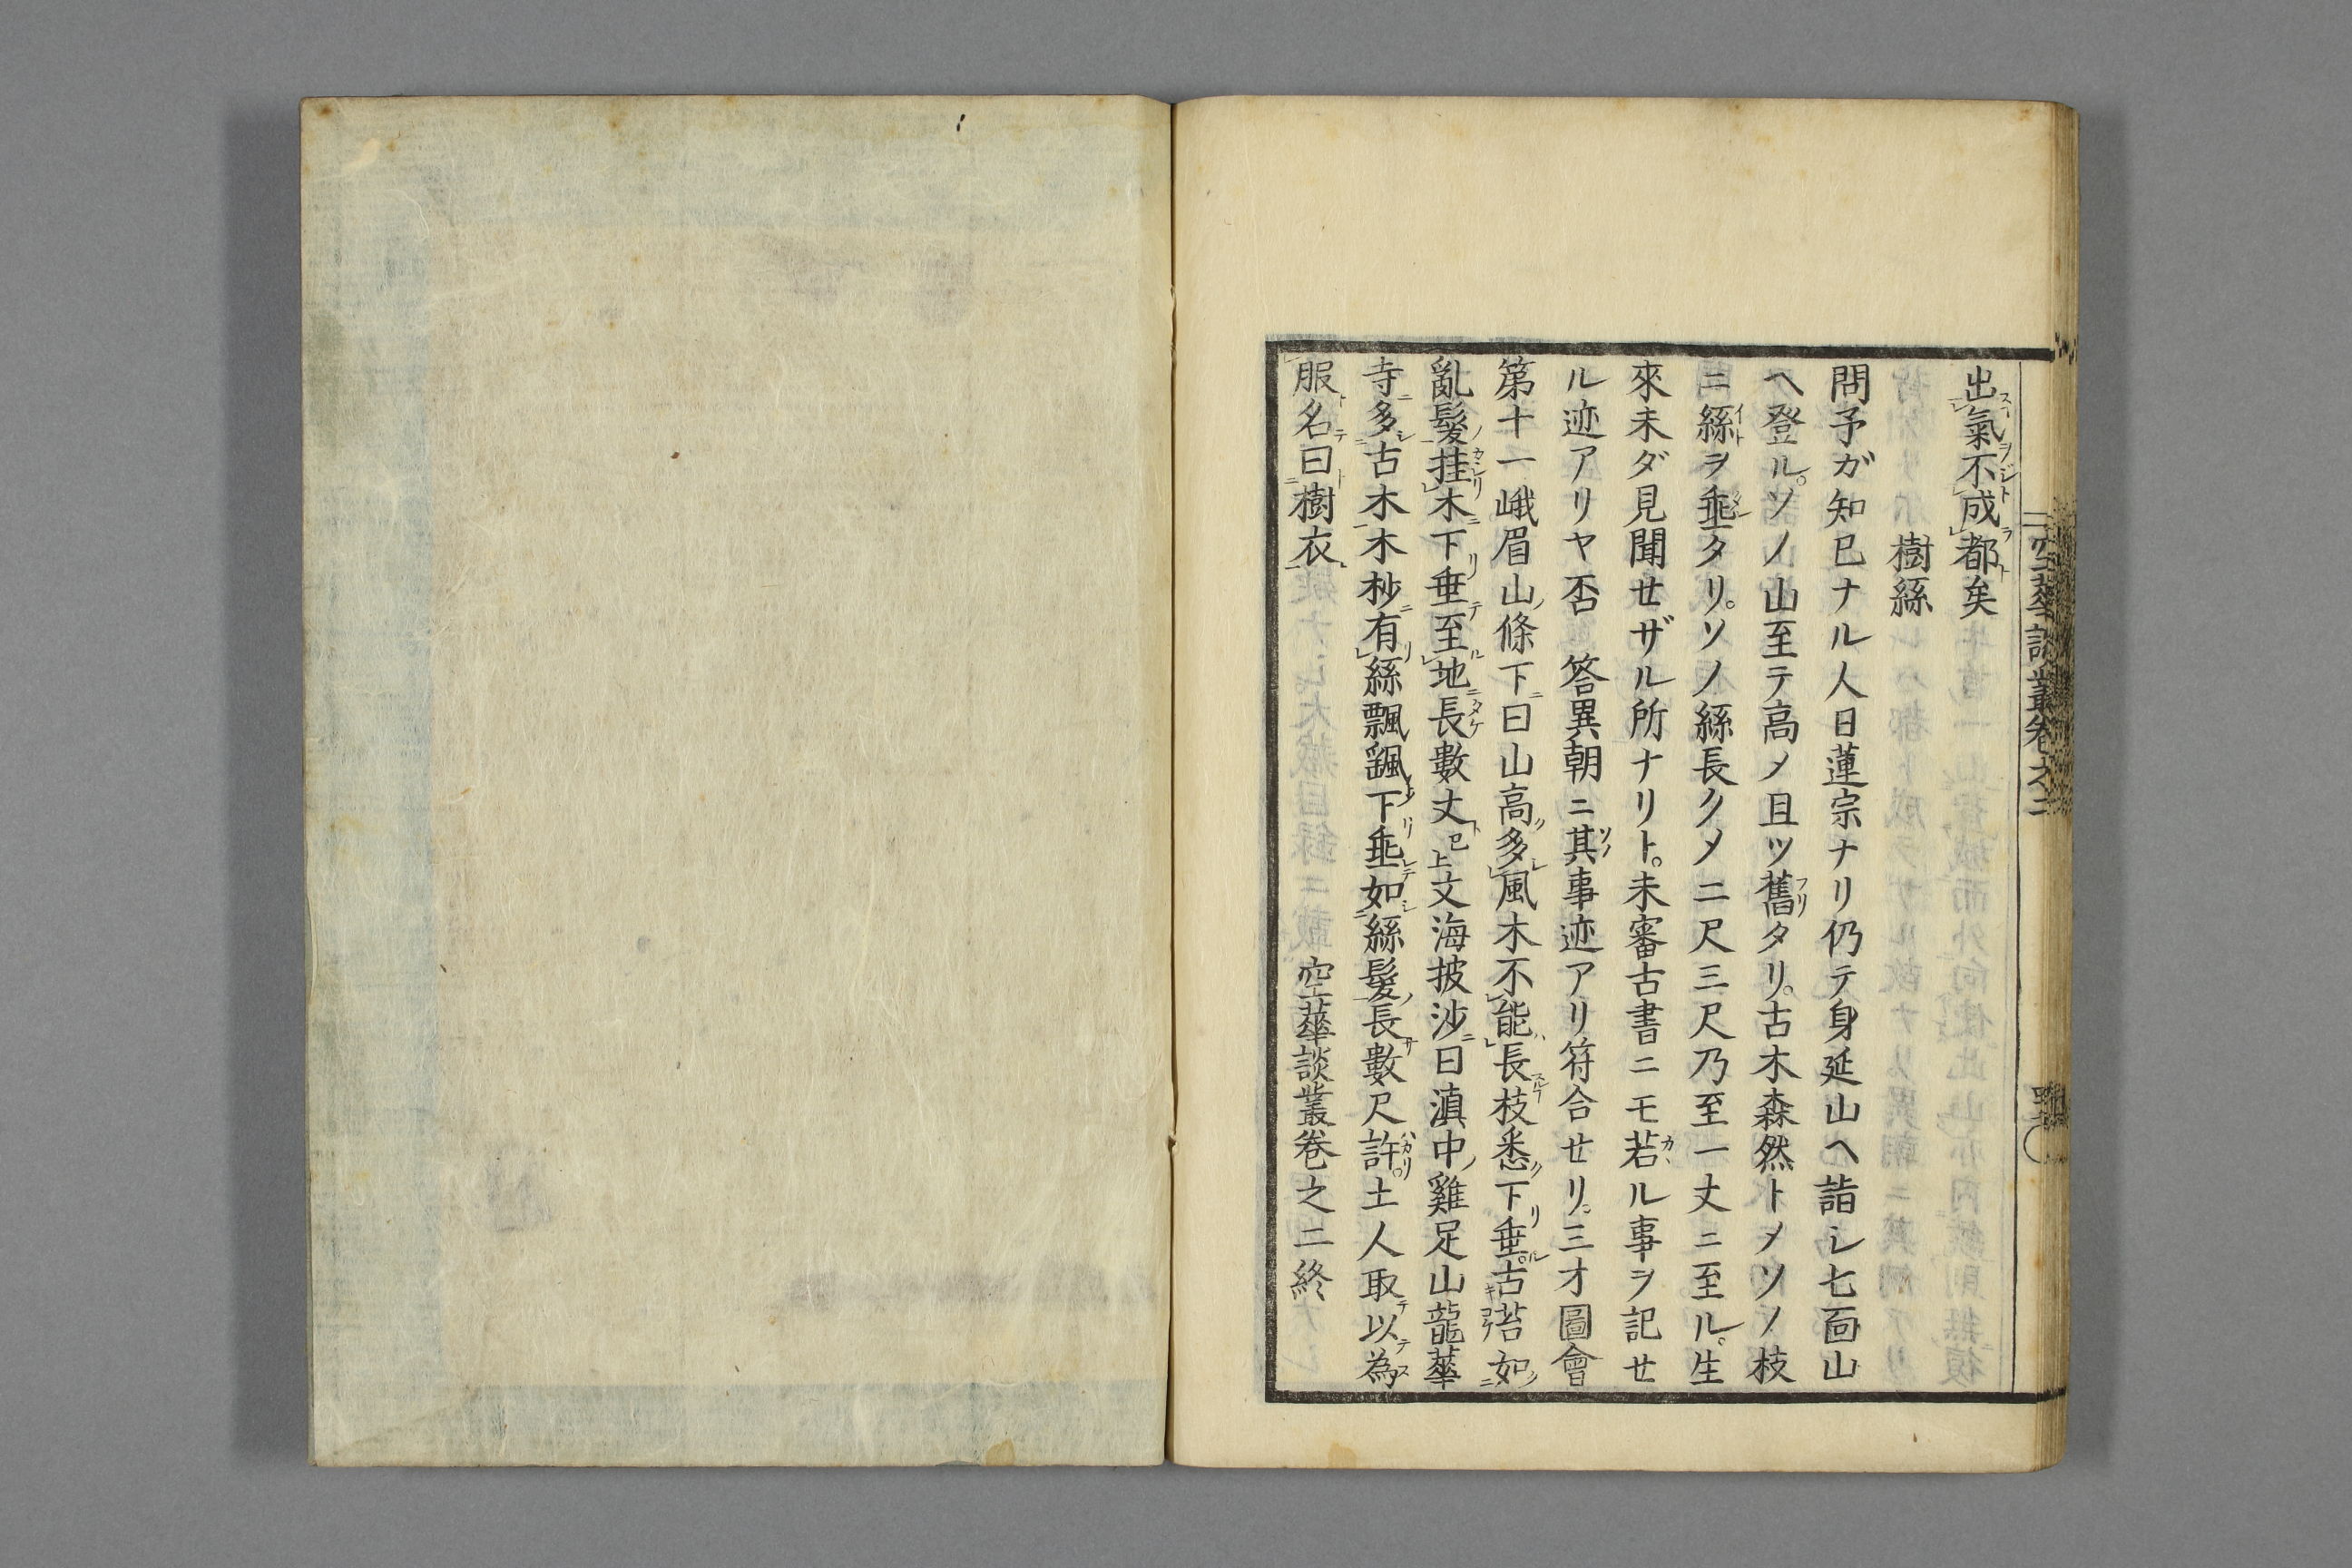 出氣不成都矣
樹絲
問予ガ知已ナル人日蓮宗ナリ仍テ身延山ヘ詣シ七面山
ヘ登ル。ソノ山至テ高メ且ツ舊タリ。古木森然トメソノ枝
ニ絲ヲ垂タリ。ソノ絲長クメ二尺三尺乃至一丈ニ至ル。生
來未ダ見聞せザル所ナリト。未審古書ニモ若ル事ヲ記せ
ル迹アリヤ否　答異朝ニ其事迹アリ符合せリ。三才圖會
第十一峨眉山條下曰山高多風木不能長枝悉下垂。古苔如
亂髮挂木下垂至地長數丈已上文海披沙曰滇中雞足山龍華
寺多古木木杪有絲飄颻下垂如絲髮長數尺許。土人取以為
服名曰樹衣　空華談叢卷之二終
空華談叢卷之二